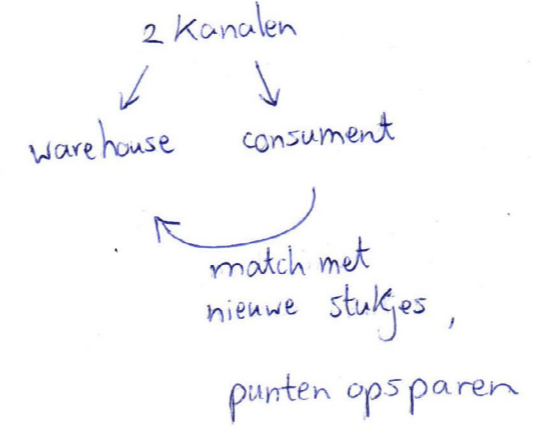 2 Kanalen
warehouse consument
match met
nieuwe stukjes,
punten opsparen